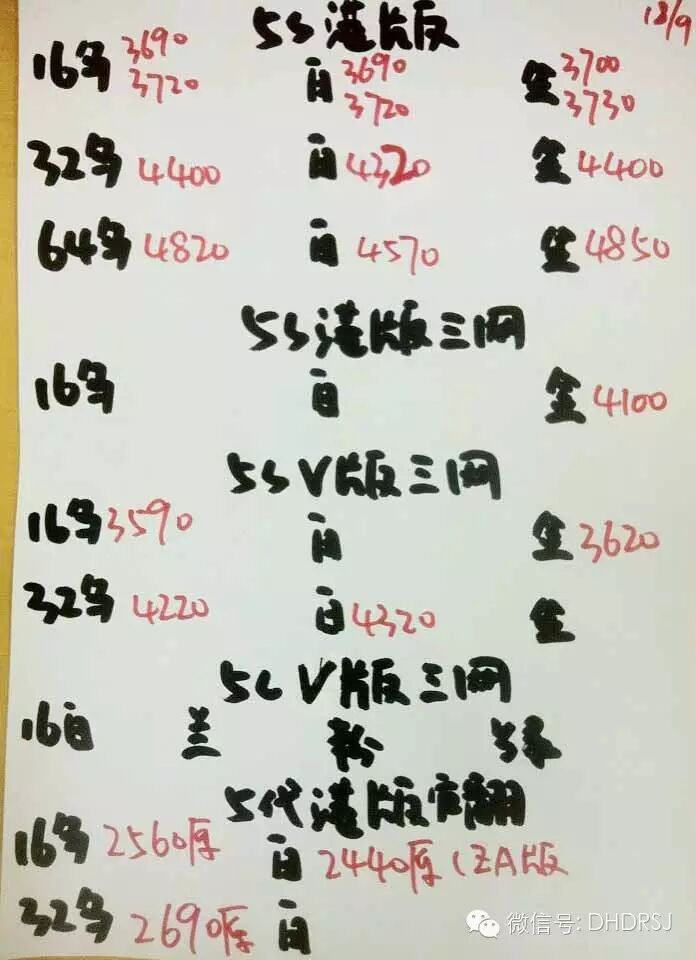 5S港版 18/9
16多 3690 3720 白 3690 3720 金 3700 3730
32多 4400 白 4320 金 4400
64多 4820 白 4570 金 4850
5S港版三网
16多 白 金 4100
5SV版三网
16多 3590 白 金 3620
32多 4220 白 4320 金
5CV版三网
16白 兰 粉 绿
5代港版官翻
16多 2560厚 白 2440厚(ZA版
32多 2690厚 白
微信号: DHDRSJ